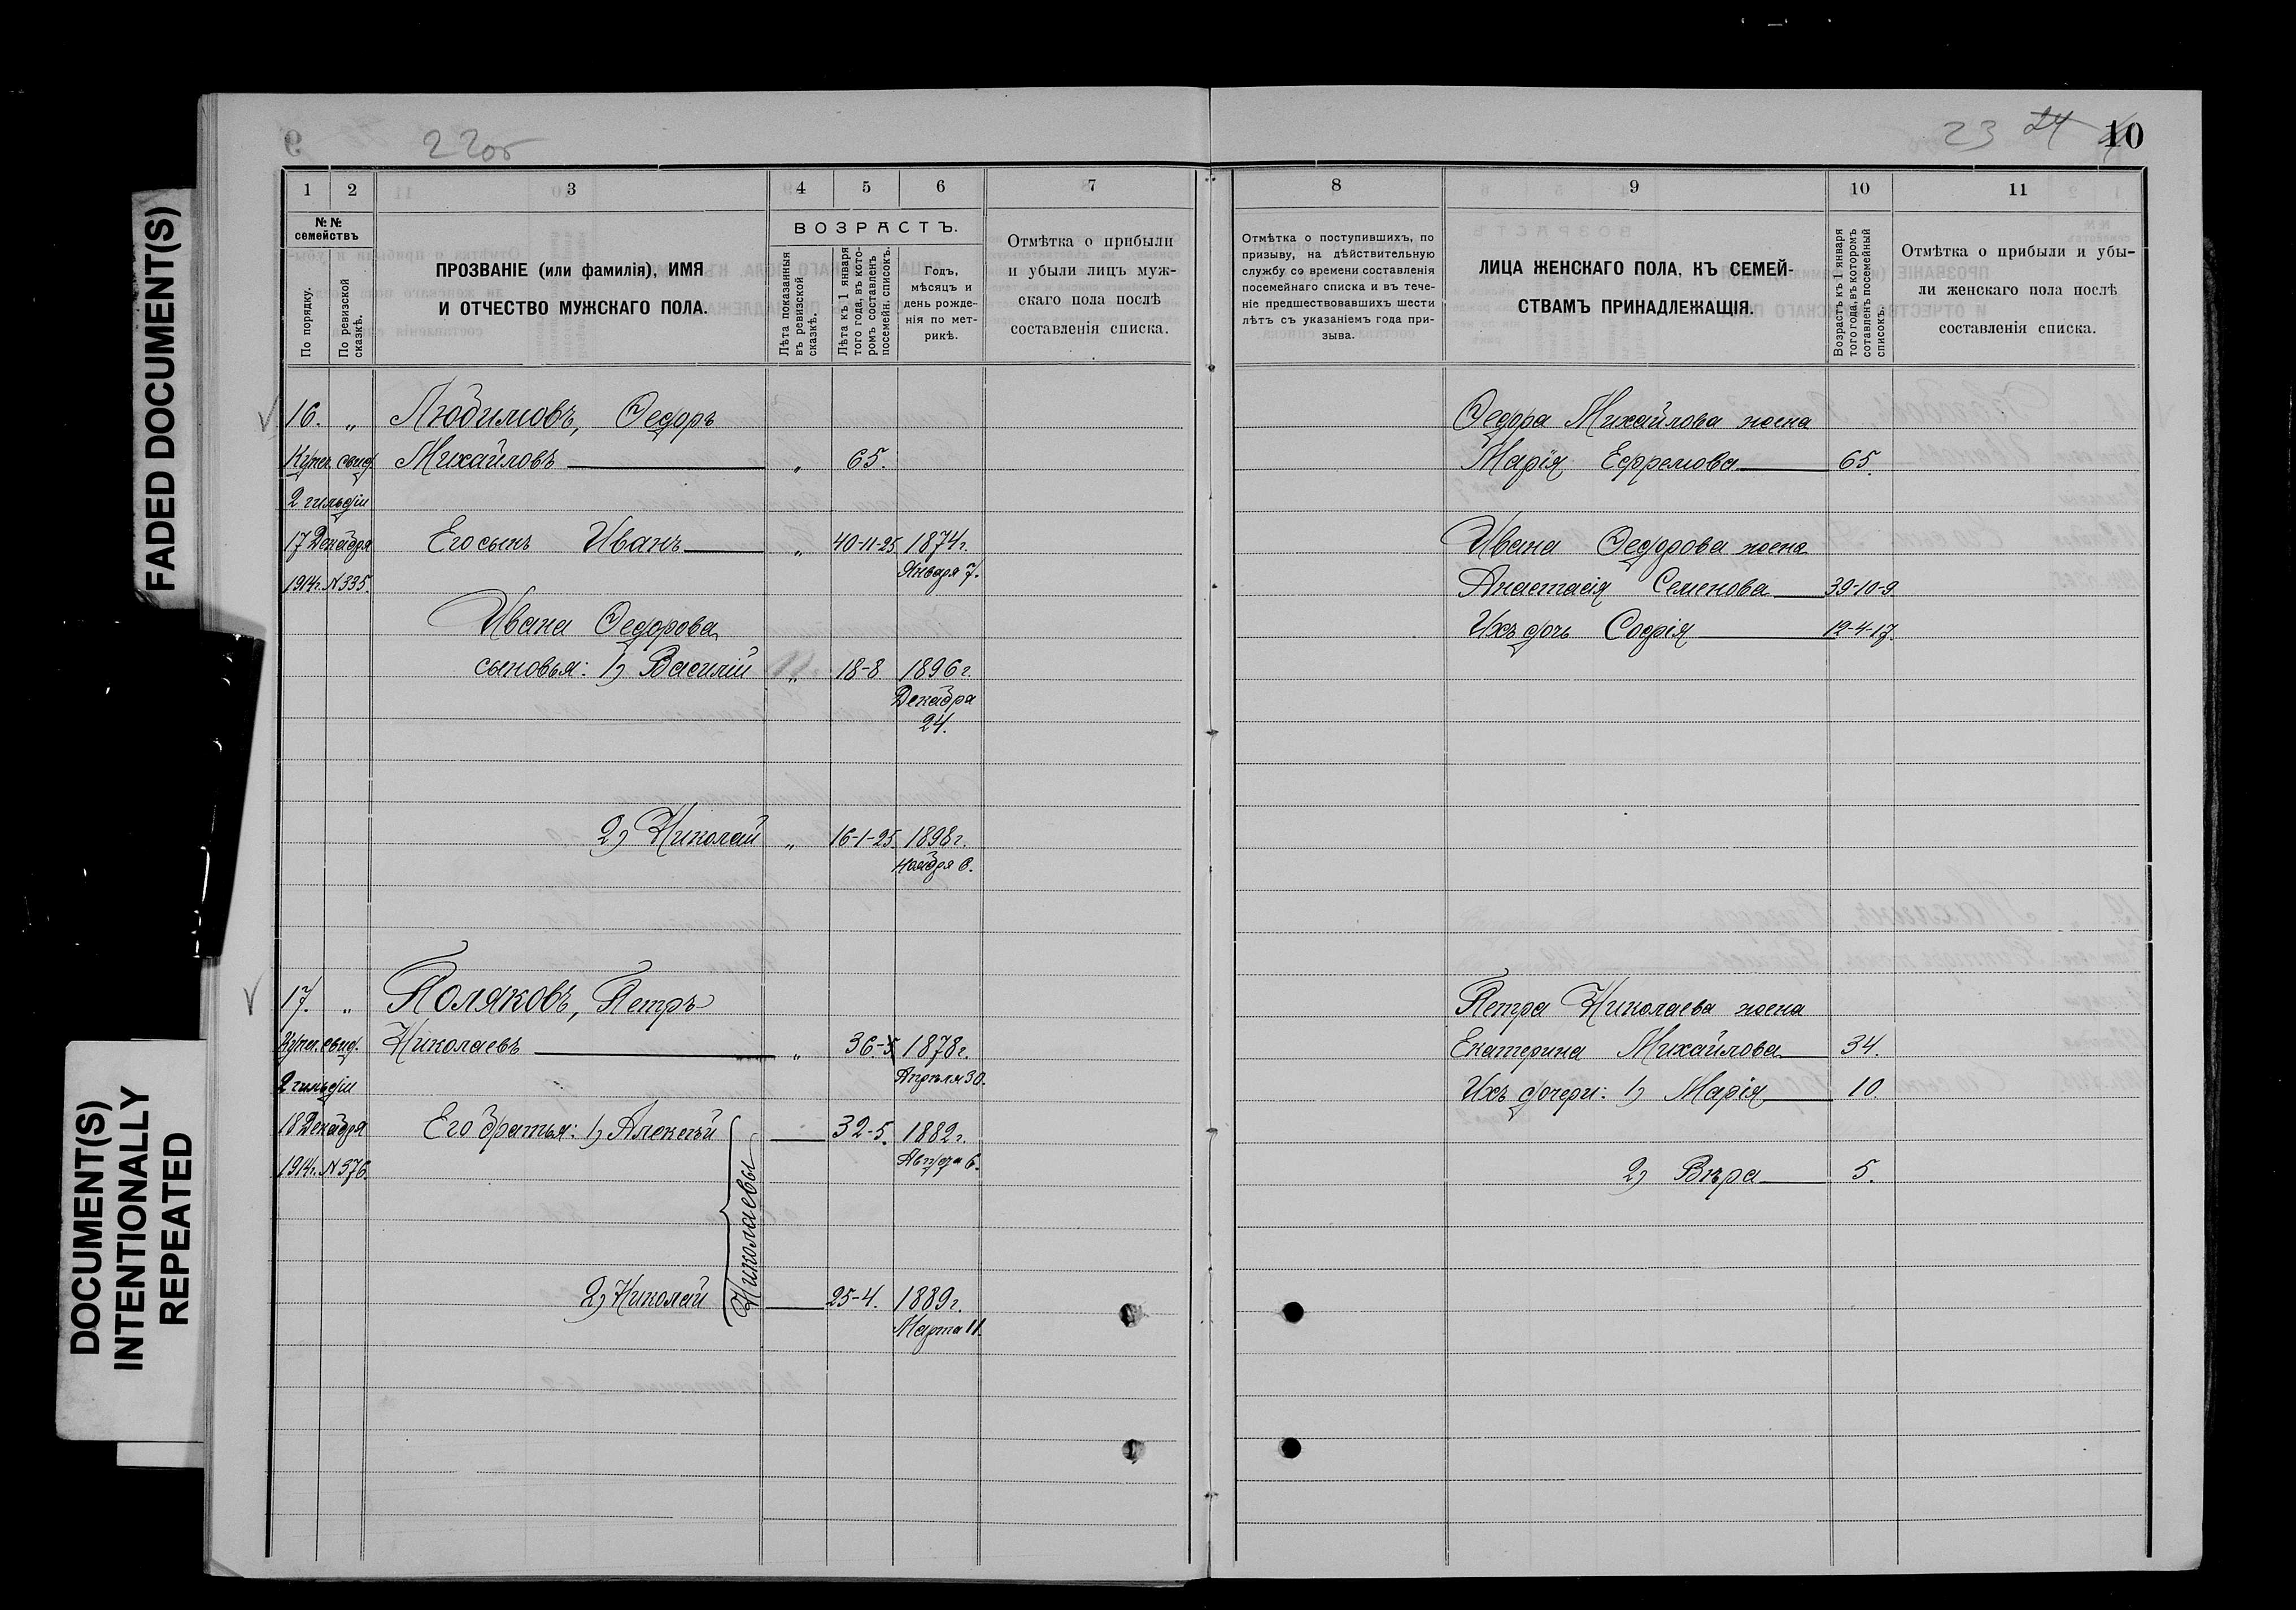 FADED DOCUMENT(S)
DOCUMENT(S)
INTENTIONALLY
REPEATED
22об
1 2 3 4 5 6 7
№№ семействъ
По порядку.
По ревизской сказкѣ.
ПРОЗВАНІЕ (или фамилія), ИМЯ
И ОТЧЕСТВО МУЖСКАГО ПОЛА.
ВОЗРАСТЪ.
Лѣта показанныя въ ревизской сказкѣ.
Лѣта къ 1 января того года, въ кото-ромъ составленъ посемейн. списокъ.
Годъ,
мѣсяцъ и
день рожде-
нія по мет-
рикѣ.
Отмѣтка о прибыли
и убыли лицъ муж-
скаго пола послѣ
составленія списка.
16. „ Любимовъ, Ѳедоръ
Купеч. свид. Михайловъ „ 65.
2 гильдіи
17 Декабря Его сынъ Иванъ „ 40-11-25 1874 г.
1914 г. № 335. Января 7.
Ивана Ѳедорова
сыновья: 1) Василій „ 18-8 1896 г.
Декабря
24.
2) Николай „ 16-1-25 1898 г.
Ноября 6.
17. „ Поляковъ, Петръ
Купеч. свид. Николаевъ „ 36- 1878 г.
2 гильдіи Апрѣля 30.
18 Декабря Его братья: 1) Алексѣй 32-5. 1882 г.
1914 г. № 576. Августа 6.
Николаевы
2) Николай 25-4. 1889 г.
Марта 11.
23 24 10
8 9 10 11
Отмѣтка о поступившихъ, по
призыву, на дѣйствительную
службу со времени составленія
посемейнаго списка и въ тече-
ніе предшествовавшихъ шести
лѣтъ съ указаніемъ года при-
зыва.
ЛИЦА ЖЕНСКАГО ПОЛА, КЪ СЕМЕЙ-
СТВАМЪ ПРИНАДЛЕЖАЩІЯ.
Возрастъ къ 1 января того года, въ которомъ сотавленъ посемейный списокъ.
Отмѣтка о прибыли и убы-
ли женскаго пола послѣ
составленія списка.
Ѳедора Михайлова жена
Марія Ефремова 65.
Ивана Ѳедорова жена
Анастасія Семенова 39-10-9.
Ихъ дочь Софія 12-4-17.
Петра Николаева жена
Екатерина Михайлова 34.
Ихъ дочери: 1) Марія 10.
2) Вѣра 5.